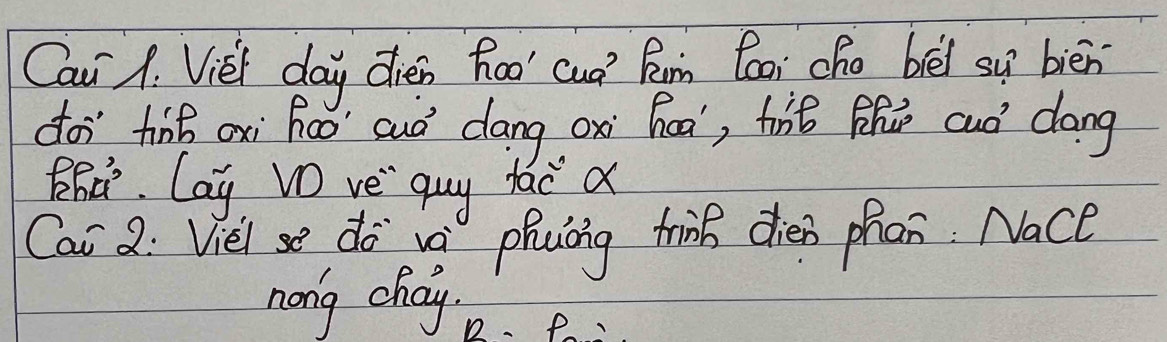 Câu 1. Viết dãy điện hoá của kim loại cho biết sự biến
đổi tính oxi hoá của dạng oxi hoá, tính khử của dạng
khử. Lấy VD về quy tắc α
Câu 2: Viết sơ đồ và phương trình điện phân: NaCl
nóng chảy.
Bài làm